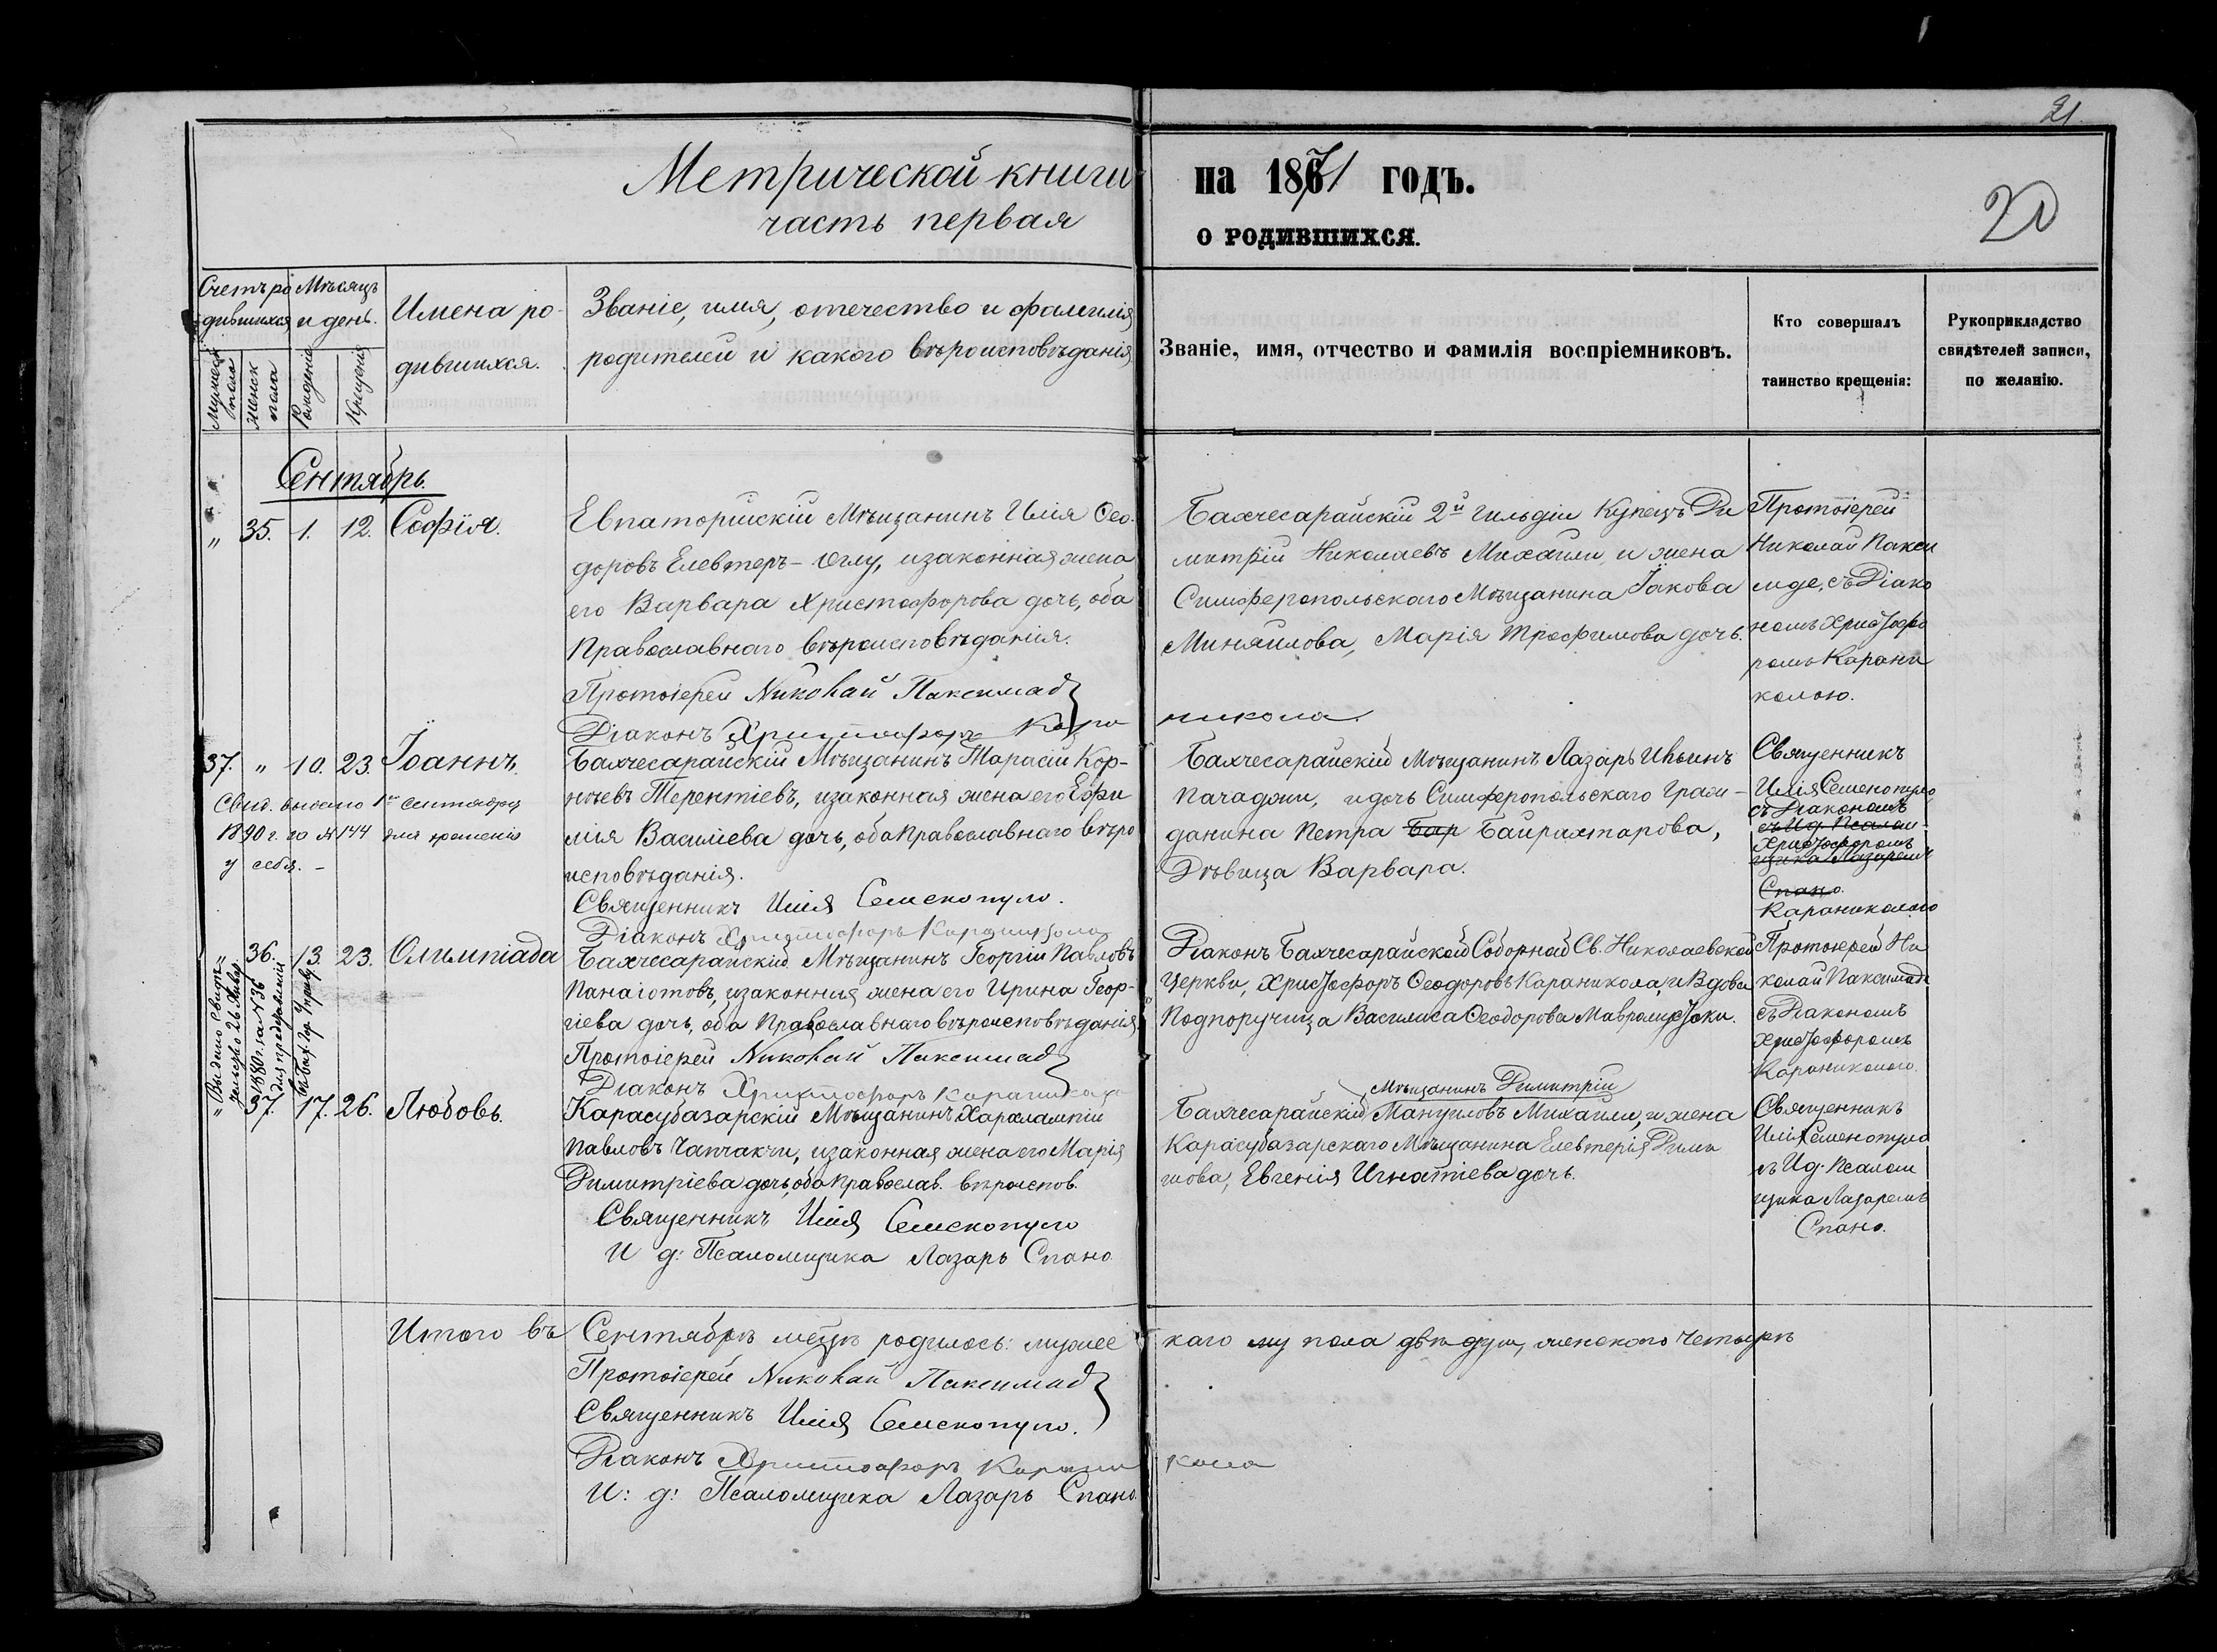 21
Метрической книги на 1871 годъ.
часть первая о родившихся.
20
Счетъ ро
дившихся
Мѣсяцъ
и день.
Имена ро-
дившихся.
Званіе, имя, отечество и фамилія
родителей и какого вѣроисповѣданія
Званіе, имя, отчество и фамилія воспріемниковъ.
Кто совершалъ
таинство крещенія:
Рукоприкладство
свидѣтелей записи,
по желанію.
Мужеск
пола
Женск
пола
Рожденія
Крещенія
Сентябрь.
" 35. 1. 12. Софія.
Евпаторійскій Мѣщанинъ Илія Ѳео-
доровъ Елевтеръ-Оглу, и законная жена
его Варвара Христофорова дочь, оба
Православнаго вѣроисповѣданія.
Протоіерей Николай Паксимад
Діаконъ Христофоръ Карани
никола
Бахчесарайскій 2й гильдіи Купецъ Ди
митрій Николаевъ Михаили, и жена
Симферопольскаго Мѣщанина Іакова
Миняилова, Марія Трофимова дочь.
Протоіерей
Николай Пакси
маде, съ Діако
номъ Христофо
ромъ Карани
колою.
37. " 10. 23. Іоаннъ.
Свид. выдано 1го сентября
1890 г. за № 144 для храненія
у себя. -
Бахчесарайскій Мѣщанинъ Тарасій Кор-
нѣевъ Терентіевъ, и законная жена его Ефи
мія Василіева дочь, оба Православнаго вѣро
исповѣданія.
Священникъ Илія Семенопуло.
Діаконъ Христофоръ Караникола
Бахчесарайскій Мѣщанинъ Лазарь Ильинъ
Пачаджи, и дочь Симферопольскаго Граж-
данина Петра Бар Байрахтарова,
Дѣвица Варвара.
Священникъ
Илія Семенопуло,
съ Діакономъ
съ И.д. Псалом-
Христофоромъ
щика Лазаремъ
Спано.
Караниколою
" 36. 13. 23. Олимпіада
" Выдано свидѣ-
тельство 26 Январ.
1880 г. за № 36
для представленія
въ Бах. Гор. Управу.
Бахчесарайскій Мѣщанинъ Георгій Павловъ
Панаіотовъ, и законная жена его Ирина Геор-
гіева дочь, оба Православнаго вѣроисповѣданія
Протоіерей Николай Паксимад
Діаконъ Христофоръ Караникола
Діаконъ Бахчесарайской Соборной Св. Николаевской
Церкви, Христофоръ Ѳеодоровъ Караникола, и Вдова
Подпоручица Василиса Ѳеодорова Мавромихали.
Протоіерей Ни
колай Паксимади
съ Діакономъ
Христофоромъ
Караниколою.
37. 17. 26. Любовь.
Карасубазарскій Мѣщанинъ Харлампій
Павловъ Чапчакчи, и законная жена его Марія
Димитріева дочь, оба Православ. вѣроиспов.
Священникъ Илія Семенопуло
И д: Псаломщика Лазарь Спано
Мѣщанинъ Димитрій
Бахчесарайскій Мануиловъ Михаили, и жена
Карасубазарскаго Мѣщанина Елевтерія Дими
Евгенія Игнатіева дочь.
Священникъ
Илія Семенопуло
съ И.д. Псалом
щика Лазаремъ
Спано.
Итого въ Сентябрѣ мѣцѣ родилось: мужес каго му пола двѣ души, женскаго четыре
Протоіерей Николай Паксимад
Священникъ Илія Семенопуло.
Діаконъ Христофоръ Карани кола
И: д: Псаломщика Лазарь Спано.